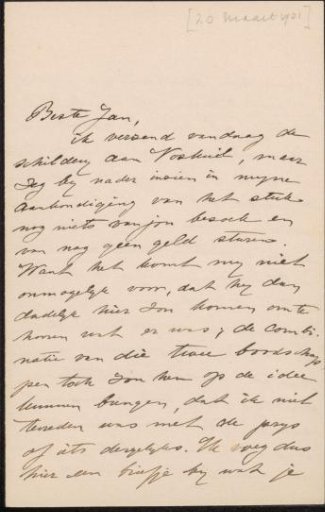 [20 Maart 1921]
Beste Jan,
ik verzend vandaag de
schilderij aan Voskuil, maar
zeg bij nader inzien in mijne
aankondiging van het stuk
nog niets van jou bezoek en
van nog geen geld sturen.
Want het komt mij niet
onmogelijk voor, dat hij dan
dadelijk hier zou komen om te
hooren wat er was; de combi-
natie van die twee boodschap-
pen toch zou hem op de idee
kunnen brengen, dat ik niet
tevreden was met de prijs
of iets dergelijks. Ik voeg dus
hier een briefje bij wat je